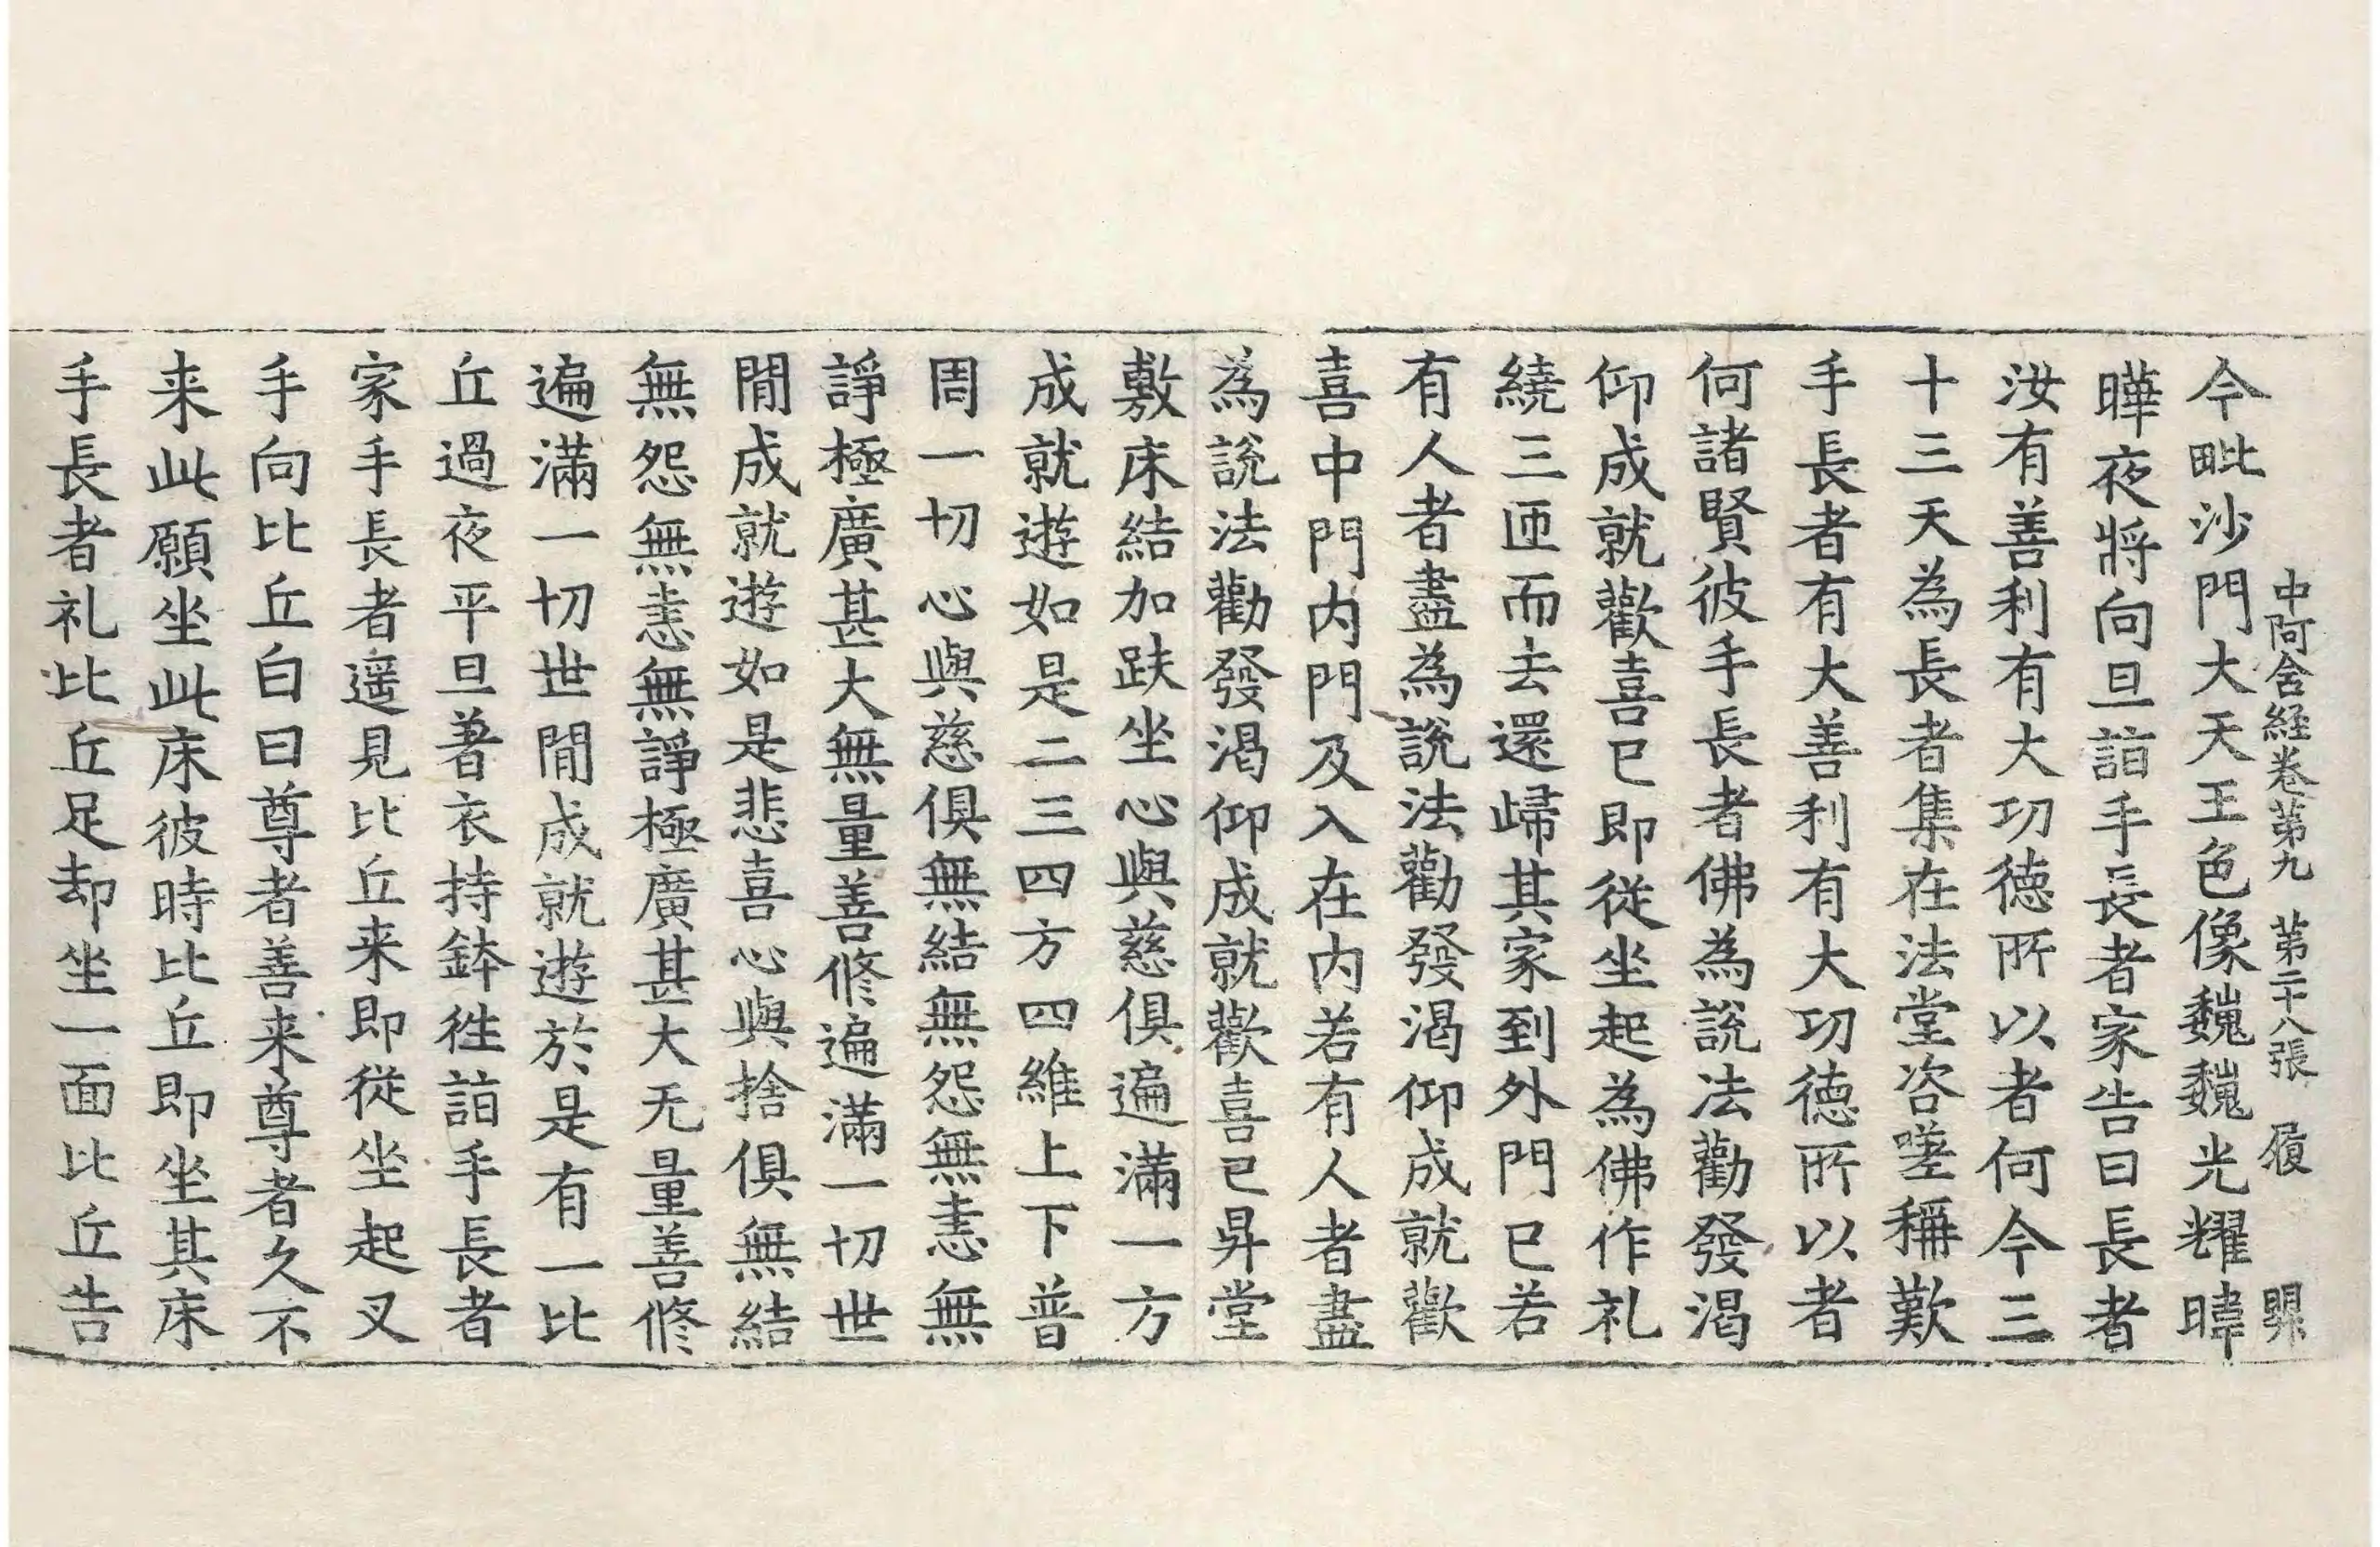 中阿含経卷第九　第二十八張　履　㬎
今毗沙門大天王色像巍巍光耀暐
曄夜將向旦詣手長者家告曰長者
汝有善利有大功徳所以者何今三
十三天為長者集在法堂咨嗟稱歎
手長者有大善利有大功徳所以者
何諸賢彼手長者佛為說法勸發渴
仰成就歡喜已即從坐起為佛作礼
繞三匝而去還歸其家到外門已若
有人者盡為說法勸發渴仰成就歡
喜中門内門及入在内若有人者盡
為說法勸發渴仰成就歡喜已昇堂
敷床結加趺坐心與慈俱遍滿一方
成就遊如是二三四方四維上下普
周一切心與慈俱無結無怨無恚無
諍極廣甚大無量善修遍滿一切世
間成就遊如是悲喜心與捨俱無結
無怨無恚無諍極廣甚大无量善修
遍滿一切世間成就遊於是有一比
丘過夜平旦著衣持鉢往詣手長者
家手長者遥見比丘来即從坐起叉
手向比丘白曰尊者善来尊者久不
来此願坐此床彼時比丘即坐其床
手長者礼比丘足却坐一面比丘告